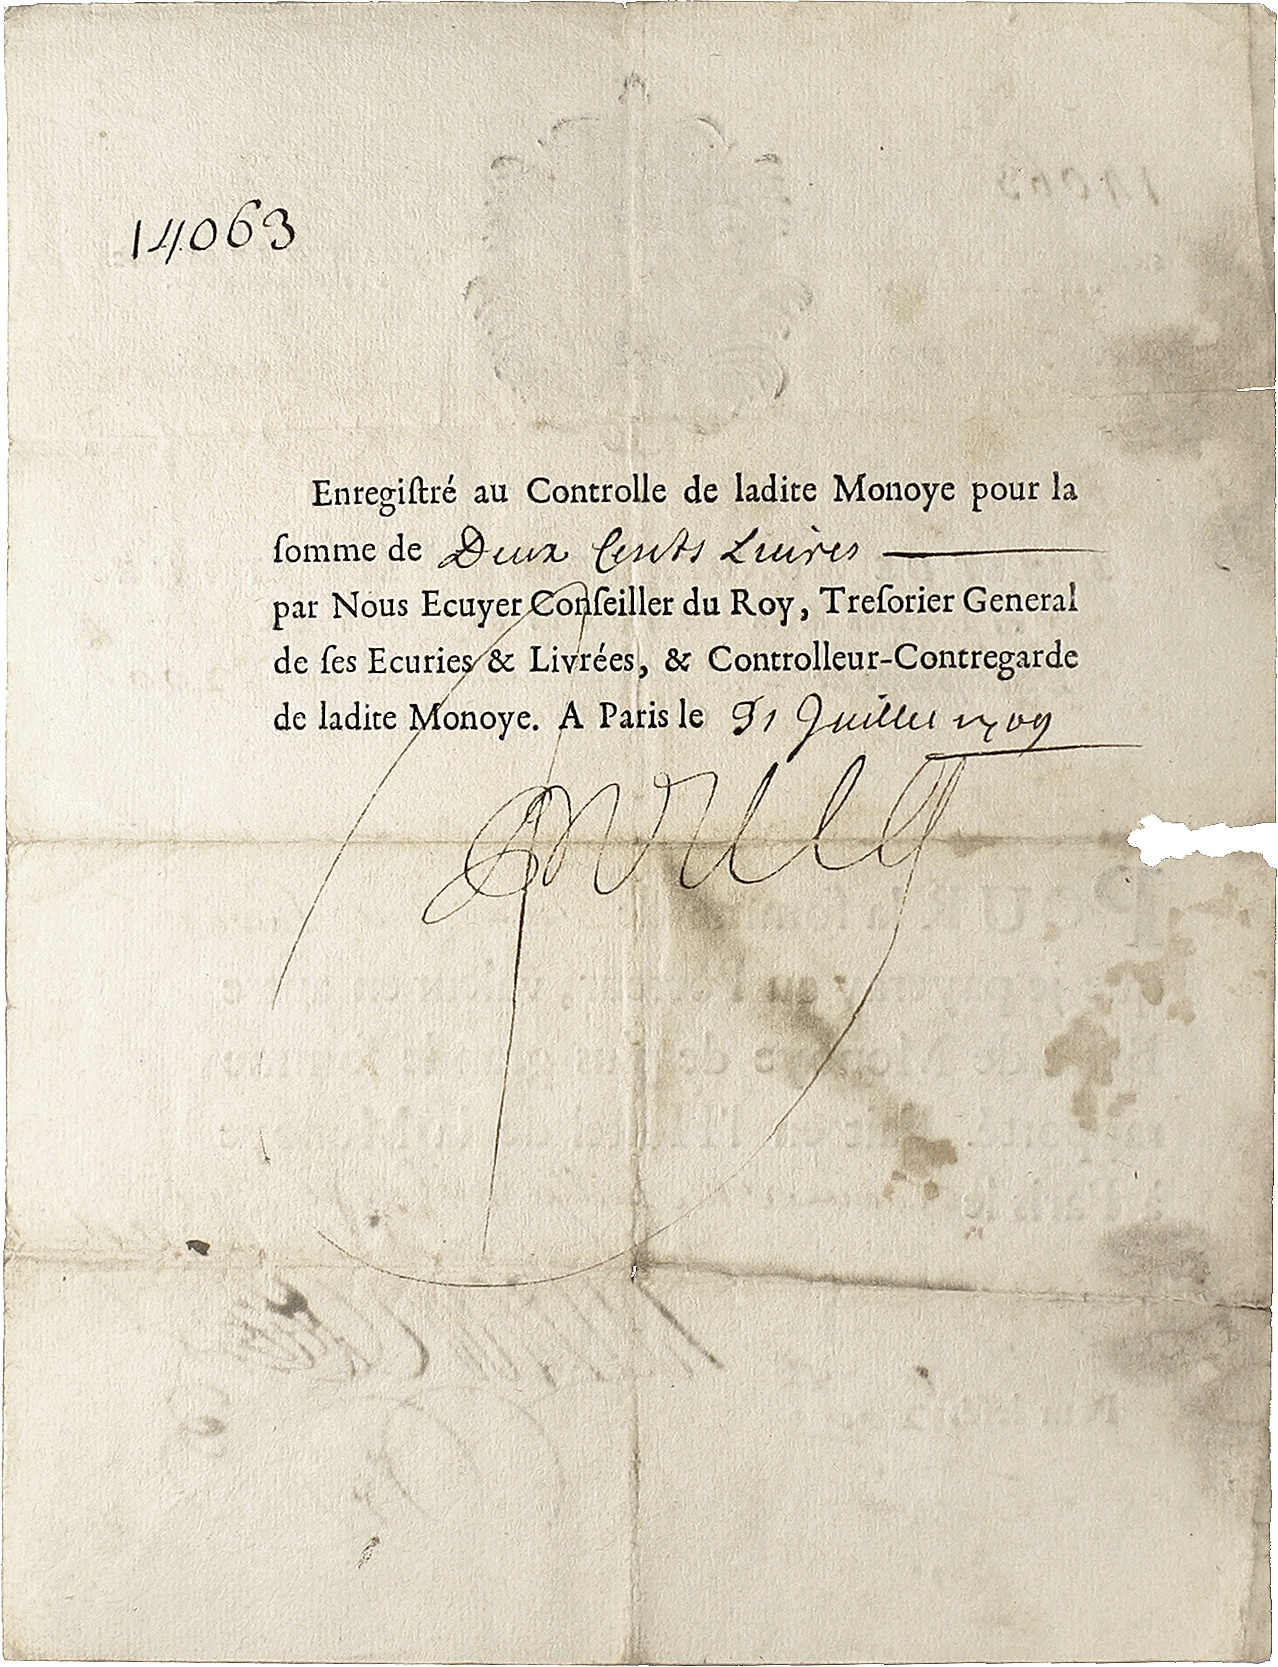 14063
Enregiſtré au Controlle de ladite Monoye pour la
ſomme de Deux Cents Livres
par Nous Ecuyer Conſeiller du Roy, Treſorier General
de ſes Ecuries & Livrées, & Controlleur-Contregarde
de ladite Monoye. A Paris le 31 Juillet 1709